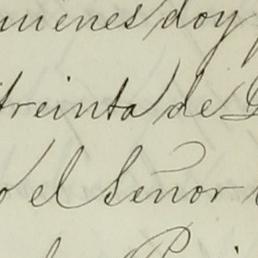 quienes doy
treinta de
el Señor